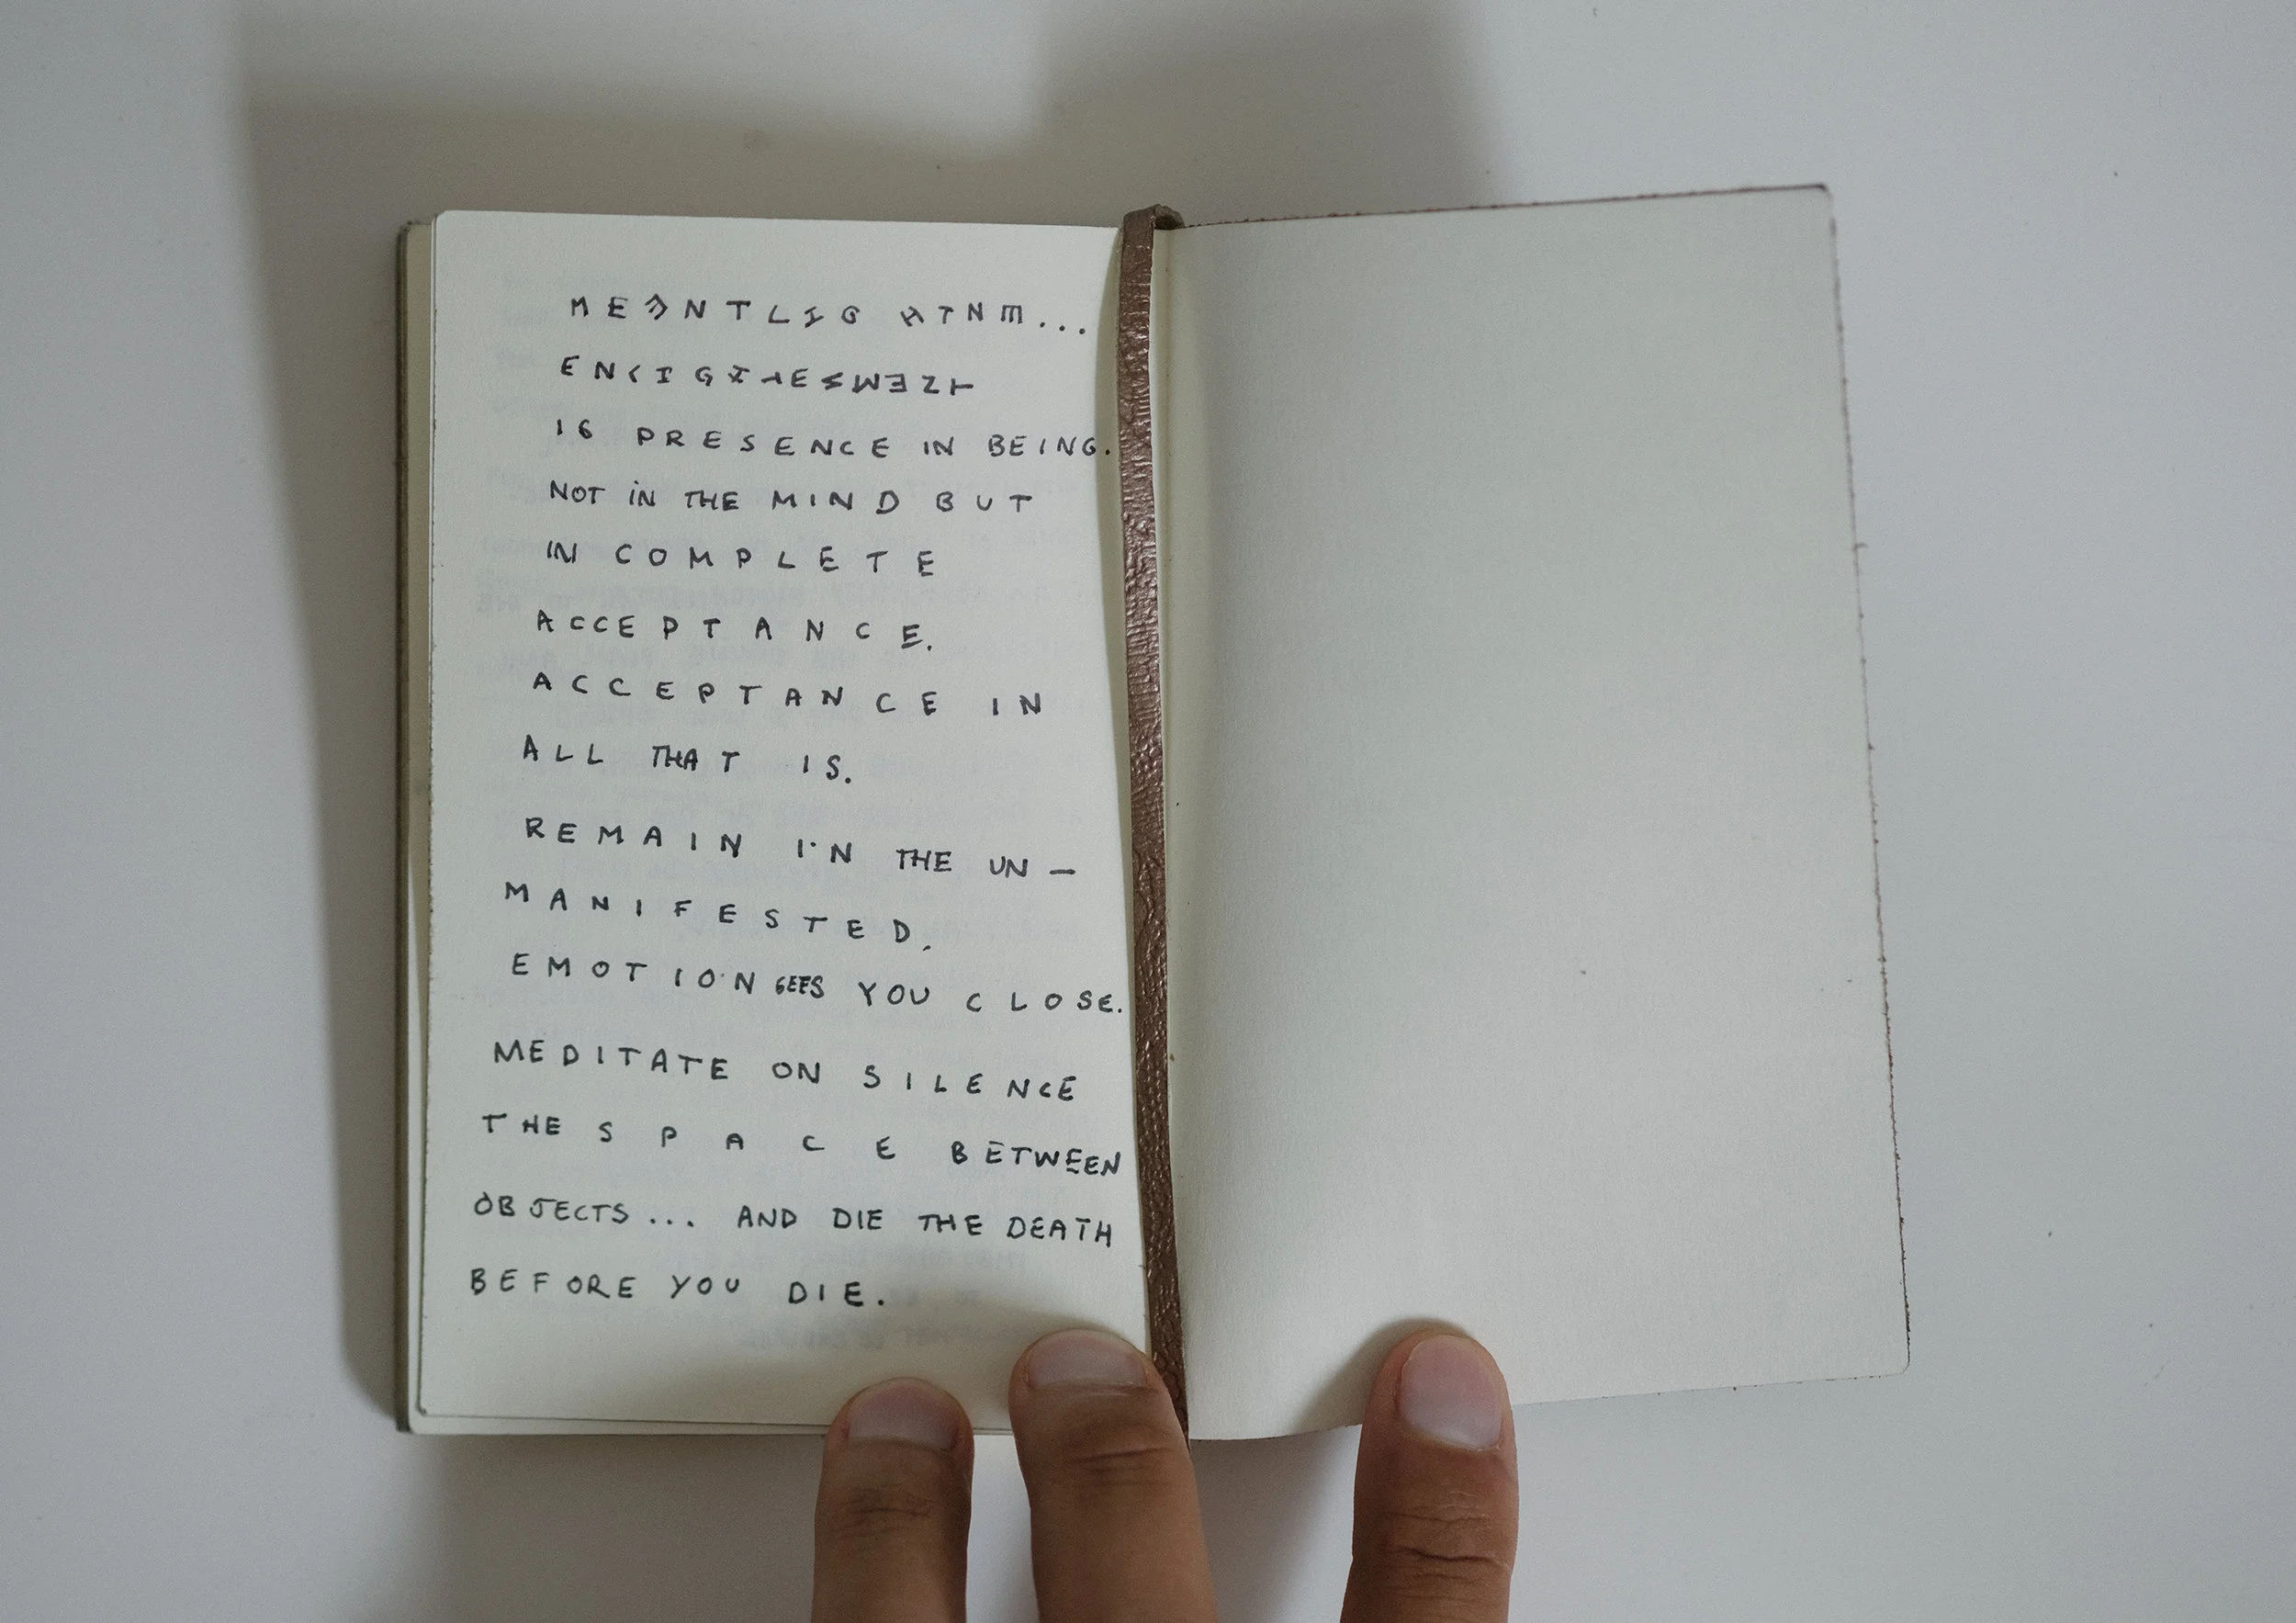 IS PRESENCE IN BEING.
NOT IN THE MIND BUT
IN COMPLETE
ACCEPTANCE.
ACCEPTANCE IN
ALL THAT IS.
REMAIN IN THE UN-
MANIFESTED.
EMOTION YOU CLOSE.
MEDITATE ON SILENCE
THE SPACE BETWEEN
OBJECTS... AND DIE THE DEATH
BEFORE YOU DIE.